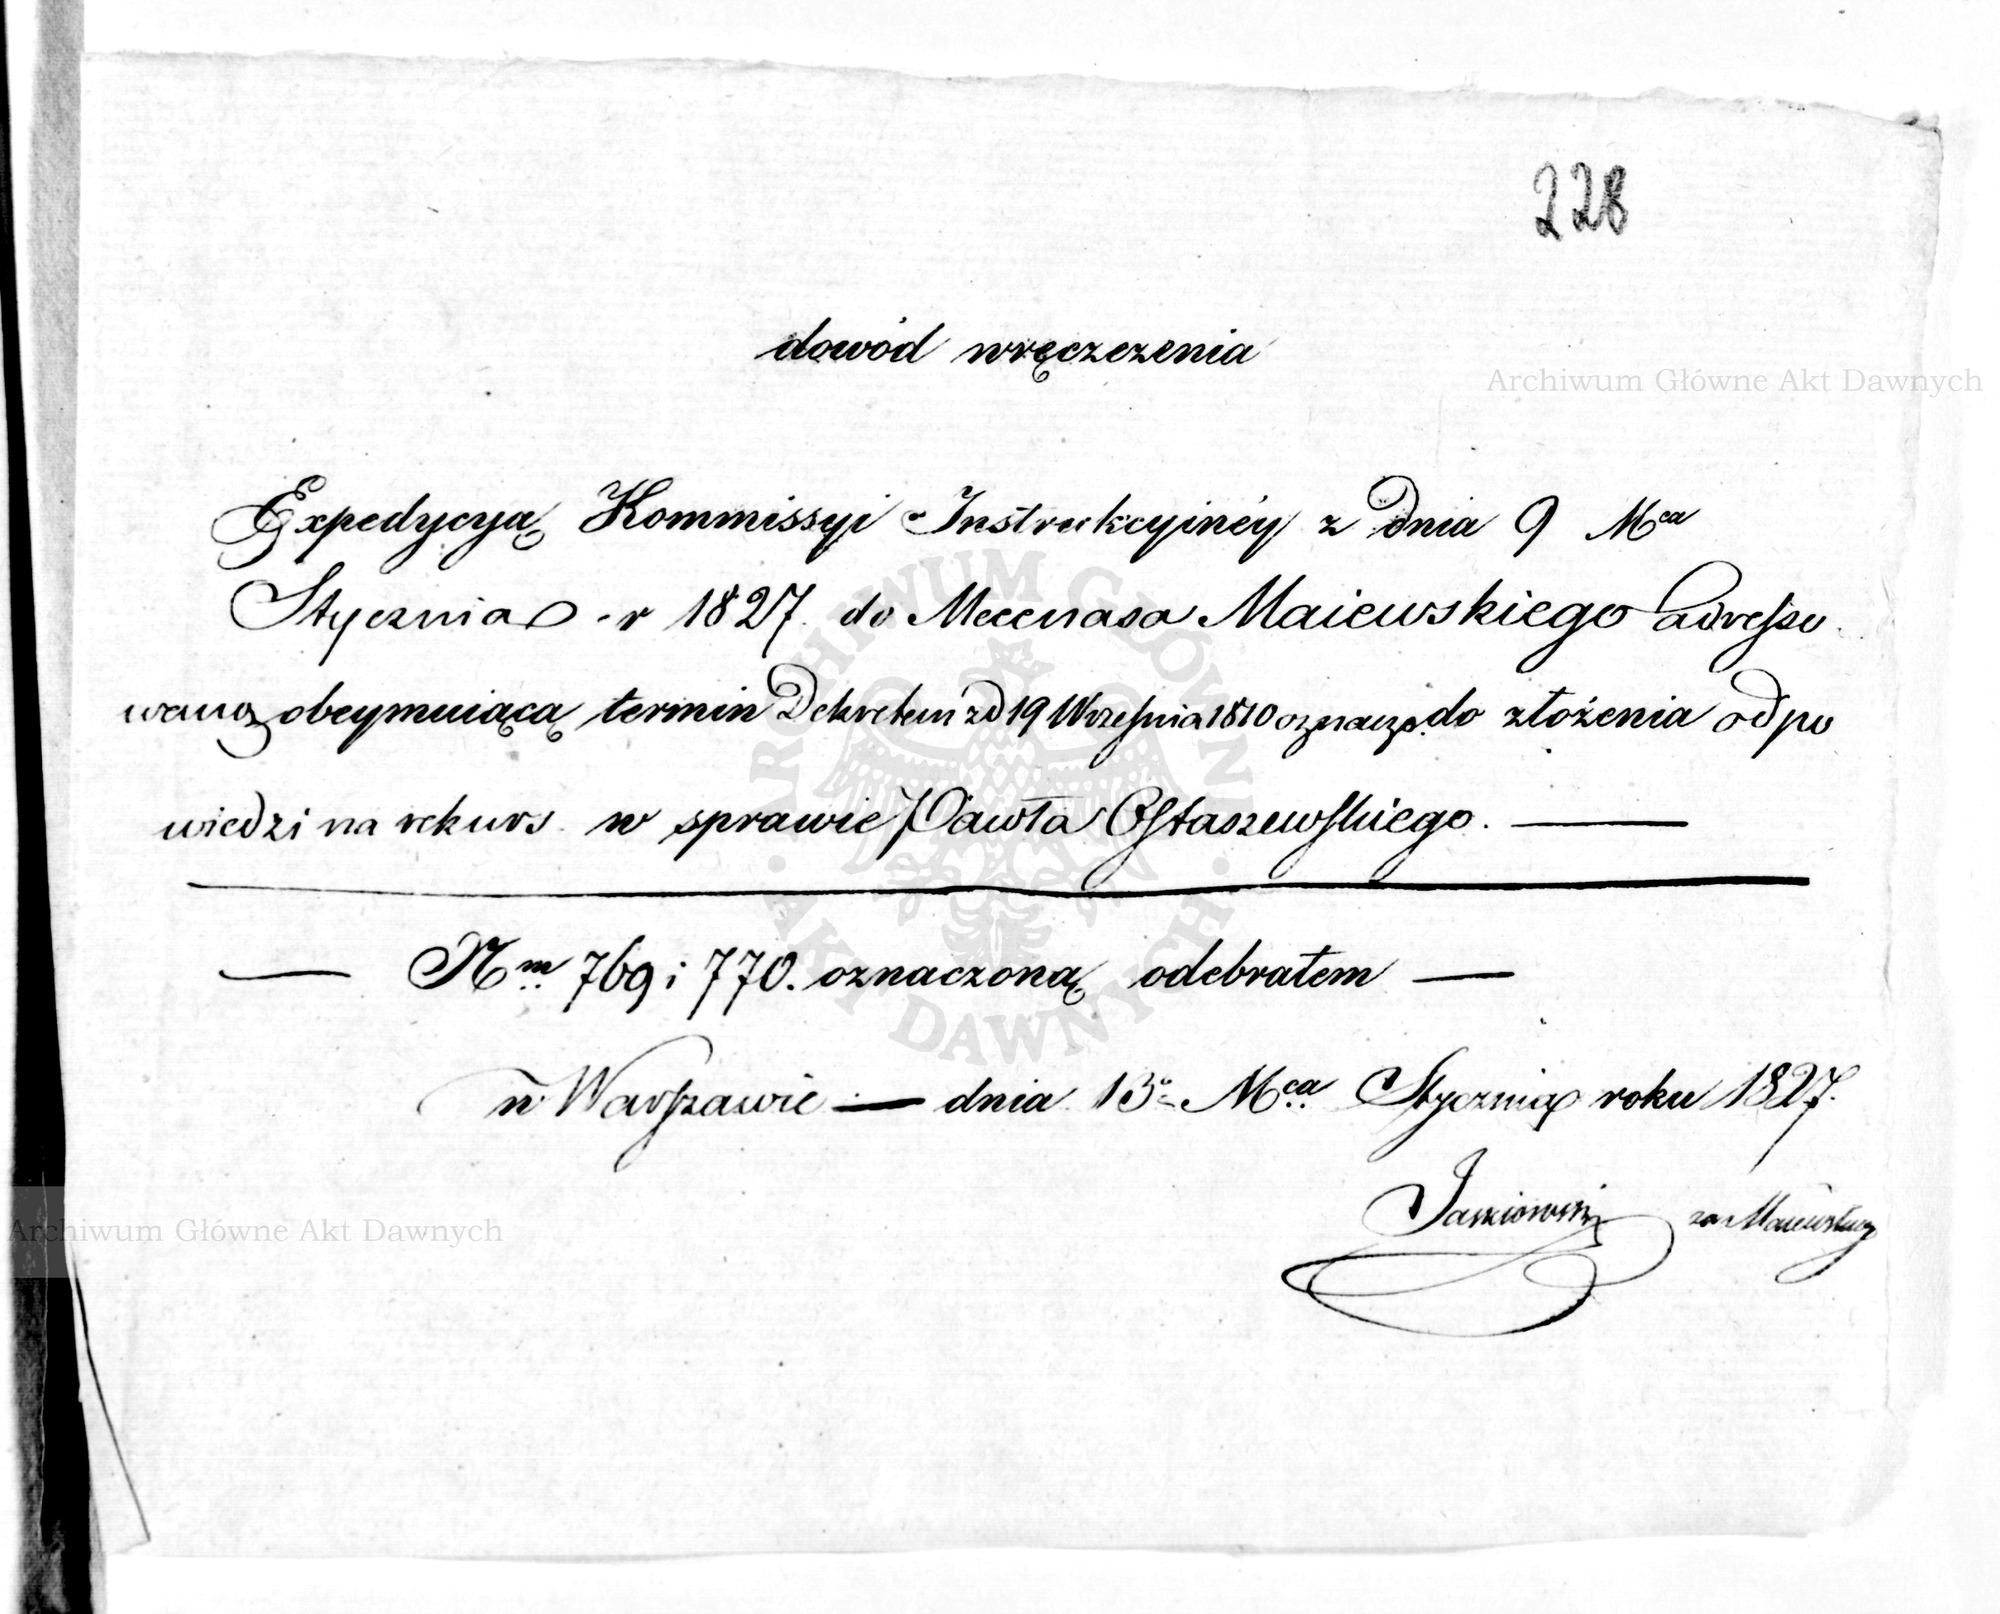 228
dowód wręczezenia
Archiwum Główne Akt Dawnych
Expedycyą Kommissyi Instrukcyinéy z Dnia 9 Mca
Stycznia r 1827. do Mecenasa Maiewskiego adresso
waną obeymuiącą termin Dekretem z d 19 Września 1810 oznaczo. do złożenia odpo
wiedzi na rekurs w sprawie Pawła Ostaszewskiego.
Nm 769 i 770. oznaczoną odebrałem
w Warszawie dnia 13 Mca Stycznia roku 1827.
za Maiewskieg
Archiwum Główne Akt Dawnych
ARCHIWUM GŁÓWNE
AKT DAWNYCH